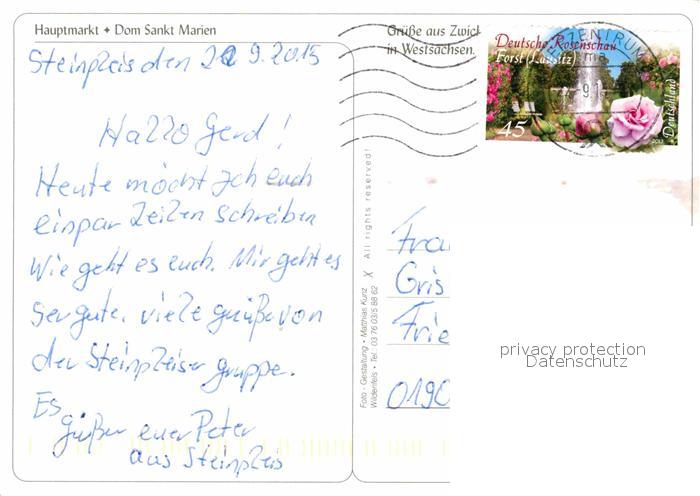 Hauptmarkt ✦ Dom Sankt Marien
Steinpleis den 22 9.2015
Hallo Gerd!
Heute möcht Ich euch
einpar Zeilen schreiben
Wie geht es euch. Mir geht es
ser gute. viele grüße von
der Steinpleiser gruppe.
Es
grüßen euer Peter
aus Steinpleis
Foto - Gestaltung • Matthias Kunz X All rights reserved!
Wildenfels • Tel.: 03 76 03/5 88 62
Grüße aus Zwick
in Westsachsen.
Deutsche Rosenschau
Forst (Lausitz)
45
Deutschland
2013
ZENTRUM
Fra
Gris
Frie
0190
privacy protection
Datenschutz